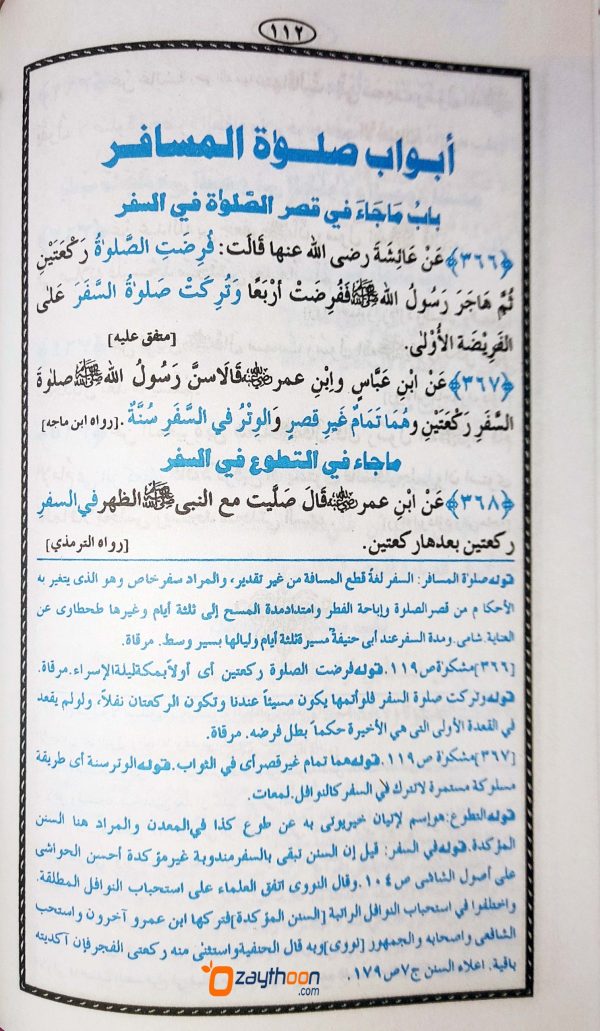 ١١٢
أبواب صلوٰة المسافر
بابُ مَاجَاءَ في قصر الصَّلوٰة في السفر
﴿٣٦٦﴾ عَنْ عَائِشَةَ رضى الله عنها قَالَت: فُرِضَتِ الصَّلوٰةُ رَكْعَتَيْنِ
ثُمَّ هَاجَرَ رَسُولُ اللهِ ﷺ فَفُرِضَتْ أَرْبَعًا وَتُرِكَتْ صَلوٰةُ السَّفَرَ عَلىٰ
الفَرِيْضَةِ الأُوْلىٰ. [متفق عليه]
﴿٣٦٧﴾ عَنْ ابنِ عَبَّاسٍ وابْنِ عمر قَالَا سنَّ رَسُوْلُ اللهِ ﷺ صلوٰةَ
السَّفَرِ رَكْعَتَيْنِ وهُمَا تَمَامٌ غَيرِ قصرٍ والوِتْرُ في السَّفَرِ سُنَّةٌ. [رواه ابن ماجه]
ماجاء في التطوع في السفر
﴿٣٦٨﴾ عَنْ ابْنِ عمر قَالَ صَلَّيت مع النبى ﷺ الظهر في السفرِ
ركعتين بعدها ركعتين. [رواه الترمذي]
قوله صلوٰة المسافر: السفر لغةً قطع المسافة من غير تقدير، والمراد سفر خاص وهو الذى يتغير به
الأحكام من قصر الصلوة وإباحة الفطر وامتداد مدة المسح إلى ثلثة أيام وغيرها طحطاوى عن
العناية. شامى. ومدة السفر عند أبى حنيفةؒ مسيرة ثلثة أيام ولياليها بسير وسط. مرقاة.
[٣٦٦] مشكوٰة ص ١١٩. قوله فرضت الصلوة ركعتين أى أولاً بمكة ليلة الإسراء. مرقاة.
قوله وتركت صلوة السفر فلو أتمها يكون مسيئاً عندنا وتكون الركعتان نفلاً، ولو لم يقعد
في القعدة الأولى التى هي الأخيرة حكماً بطل فرضه. مرقاة.
[٣٦٧] مشكوٰة ص ١١٩. قوله هما تمام غير قصر أى في الثواب. قوله الوتر سنة أى طريقة
مسلوكة مستمرة لا تترك في السفر كالنوافل. لمعات.
قوله التطوع: هو إسم لإتيان خير يوتى به عن طوع كذا في المعدن والمراد هنا السنن
المؤكدة. قوله في السفر: قيل إن السنن تبقى بالسفر مندوبة غير مؤكدة أحسن الحواشى
على أصول الشاشى ص ١٠٤. وقال النووى اتفق العلماء على استحباب النوافل المطلقة.
واختلفوا في استحباب النوافل الراتبة [السنن المؤكدة] فتركها ابن عمرو آخرون واستحب
الشافعى واصحابه والجمهور [نووى] وبه قال الحنفية واستثنى منه ركعتى الفجر فإن آكديته
باقية. اعلاء السنن ج٧ ص ١٧٩.
zaythoon
.com